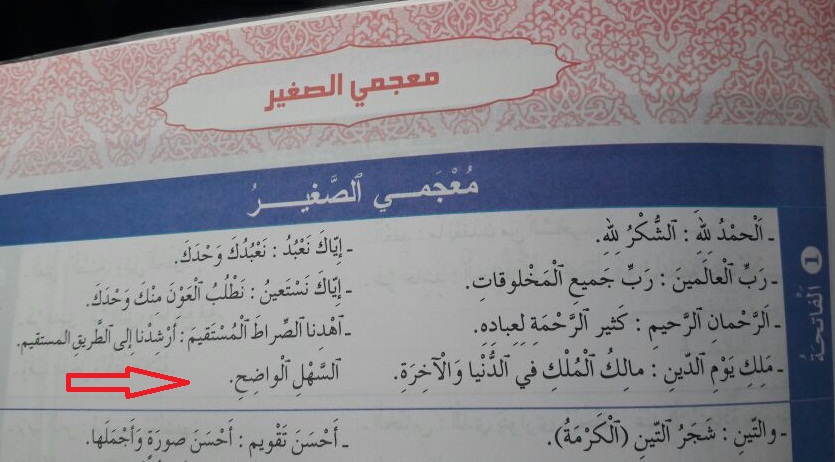 معجمي الصغير
مُعْجَمِي ٱلصَّغِيرُ
1 ٱلْفَاتِحَةُ
- ٱلْحَمْدُ لِلَّهِ : ٱلشُّكْرُ لِلَّهِ.
- رَبِّ ٱلْعَالَمِينَ : رَبِّ جَمِيعِ ٱلْمَخْلُوقَاتِ.
- ٱلرَّحْمَانِ ٱلرَّحِيمِ : كَثِيرِ ٱلرَّحْمَةِ لِعِبَادِهِ.
- مَلِكِ يَوْمِ ٱلدِّينِ : مَالِكُ ٱلْمُلْكِ فِي ٱلدُّنْيَا وَٱلْآخِرَةِ.
- إِيَّاكَ نَعْبُدُ : نَعْبُدُكَ وَحْدَكَ.
- إِيَّاكَ نَسْتَعِينُ : نَطْلُبُ ٱلْعَوْنَ مِنْكَ وَحْدَكَ.
- ٱهْدِنَا ٱلصِّرَاطَ ٱلْمُسْتَقِيمَ : أَرْشِدْنَا إِلَى ٱلطَّرِيقِ المستقيم.
ٱلسَّهْلِ ٱلْوَاضِحِ.
- وَالتِّينِ : شَجَرُ ٱلتِّينِ (ٱلْكَرْمَةُ).
- أَحْسَنَ تَقْوِيمٍ : أَحْسَنَ صُورَةٍ وَأَجْمَلَهَا.